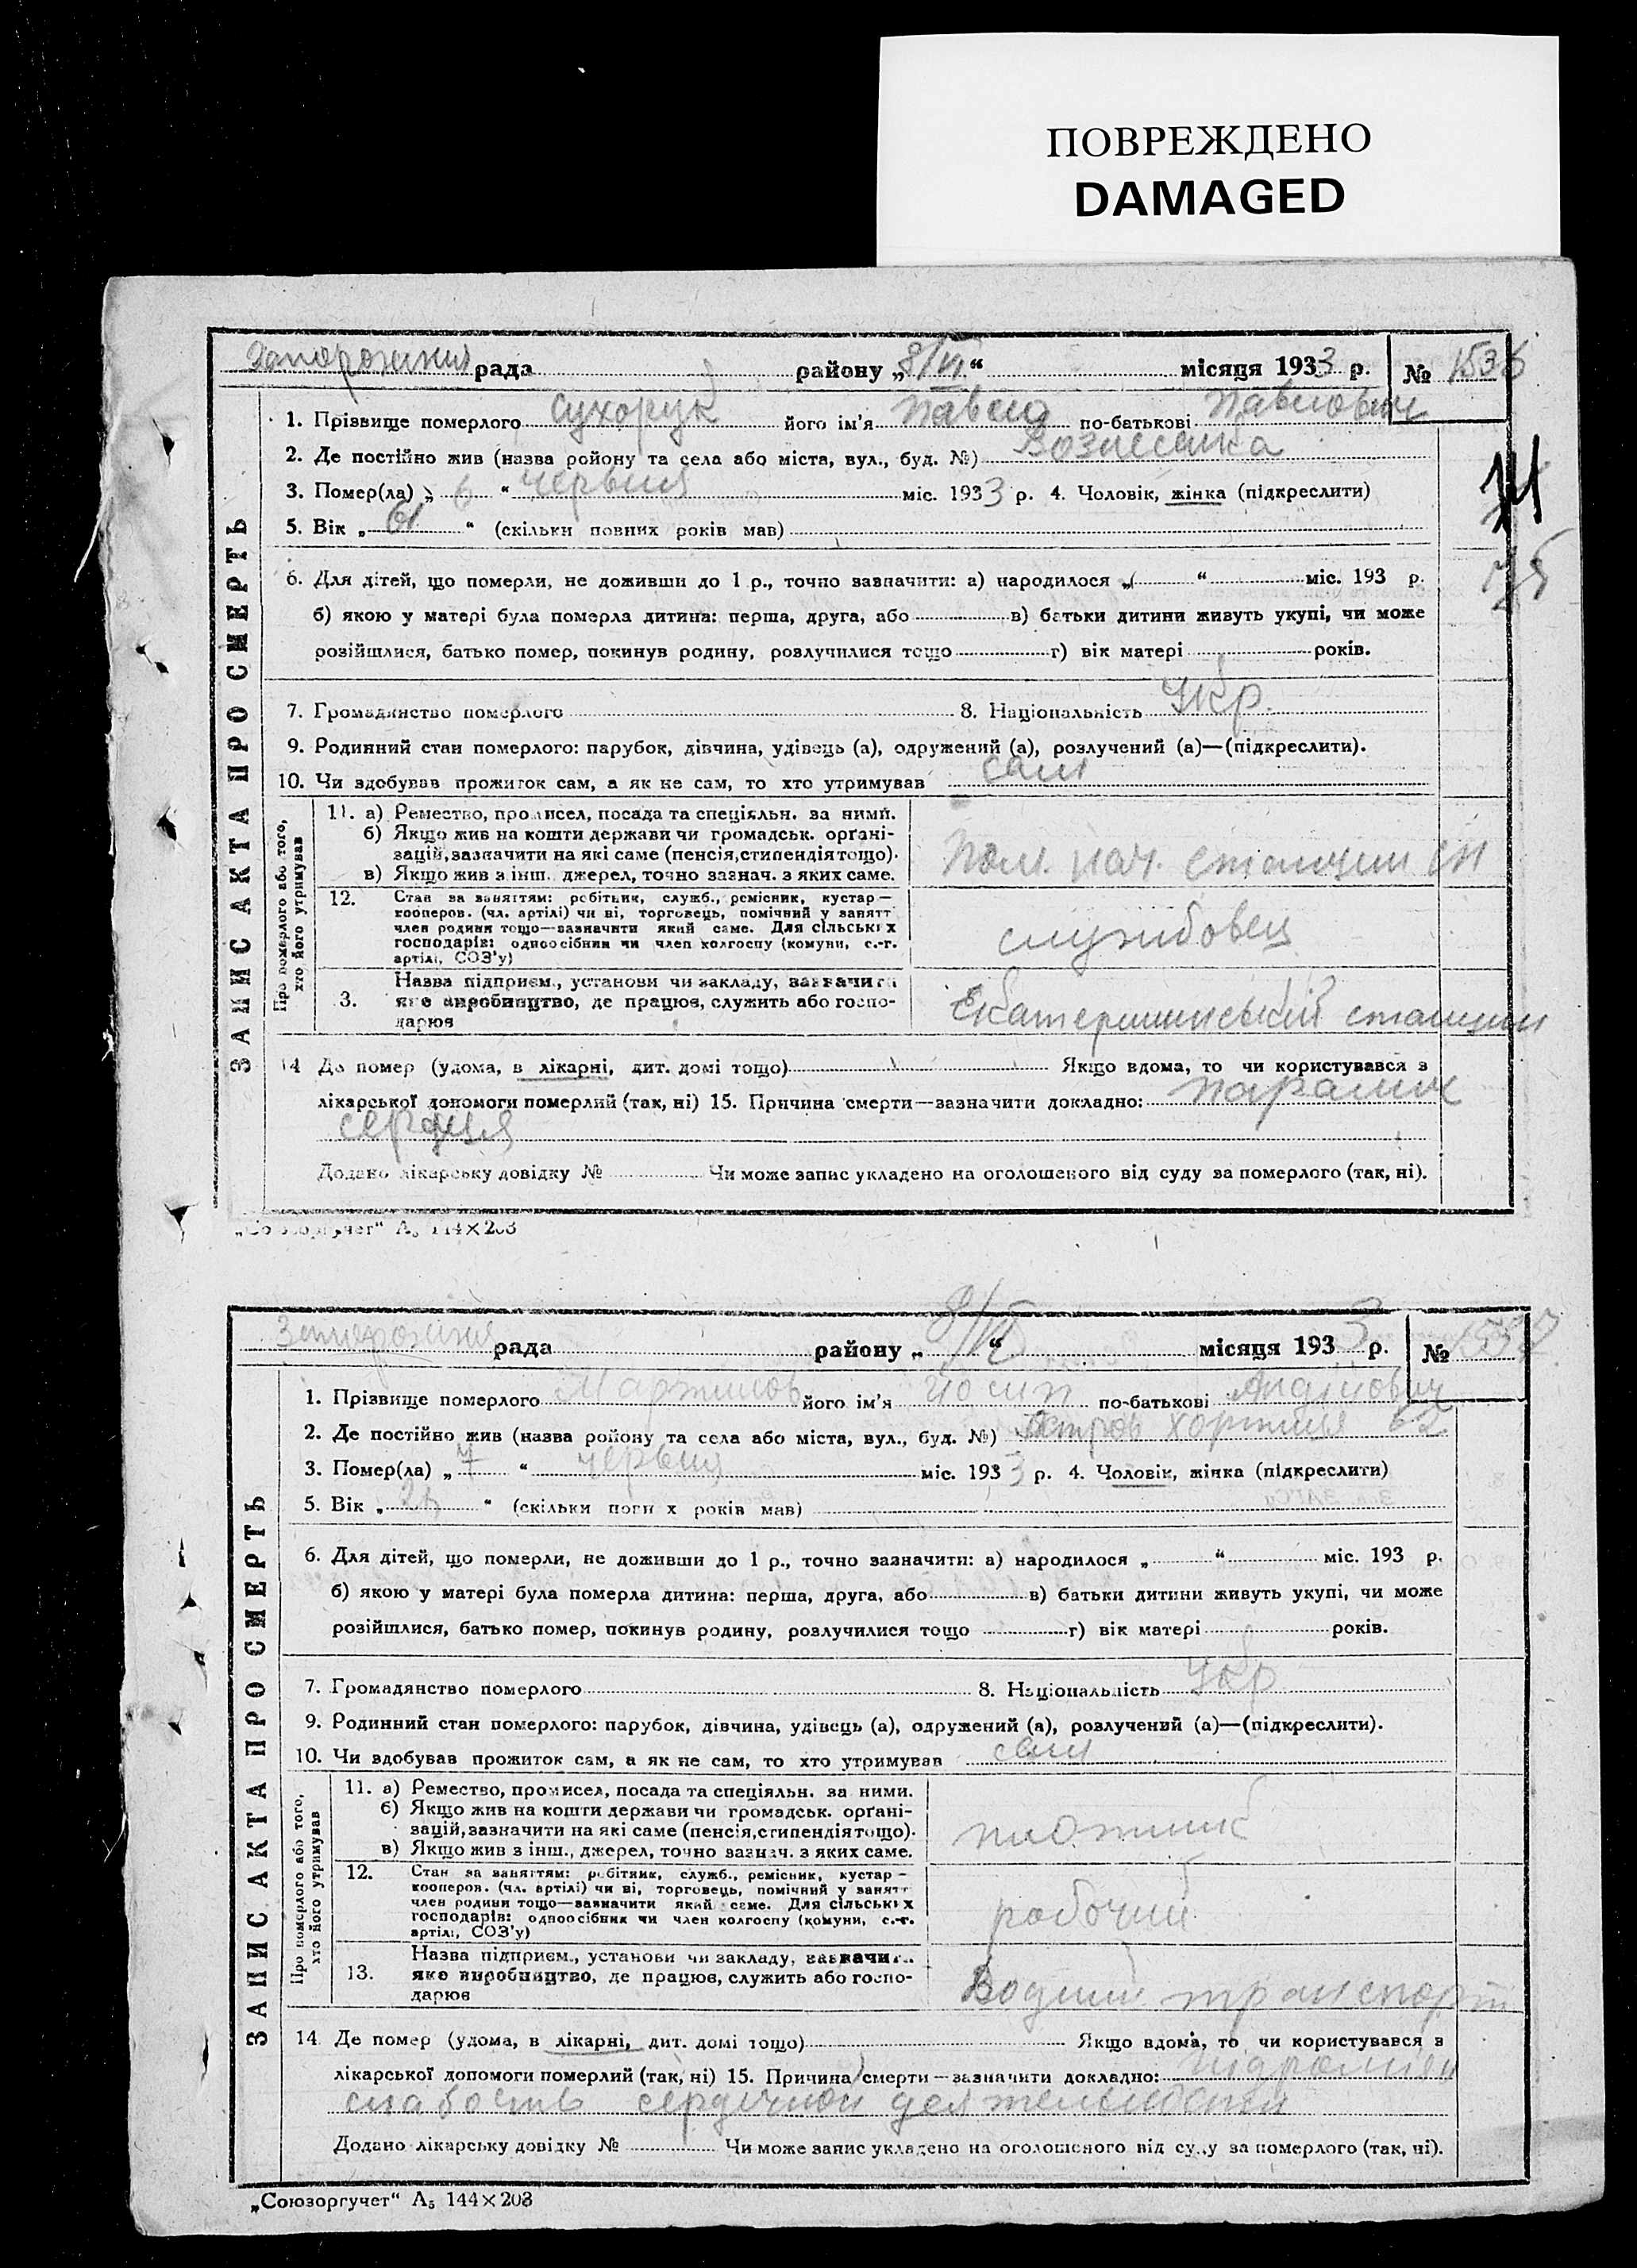 ПОВРЕЖДЕНО
DAMAGED
рада району „8/VI“ місяця 1933 р. № 1536
ЗАПИС АКТА ПРО СМЕРТЬ
1. Прізвище померлого Сухорук його ім'я Павло по-батькові Павлович
2. Де постійно жив (назва ройону та села або міста, вул., буд. №) Вознесенка
3. Помер(ла) „ 6 “ червня міс. 1933 р. 4. Чоловік, жінка (підкреслити)
5. Вік „ 61 “ (скільки повних років мав)
74
75
6. Для дітей, що померли, не доживши до 1 р., точно зазначити: а) народилося „ “ міс. 193 р.
б) якою у матері була померла дитина: перша, друга, або в) батьки дитини живуть укупі, чи може
розійшлися, батько помер, покинув родину, розлучилися тощо г) вік матері років.
7. Громадянство померлого 8. Національність Укр.
9. Родинний стан померлого: парубок, дівчина, удівець (а), одружений (а), розлучений (а)—(підкреслити).
10. Чи здобував прожиток сам, а як не сам, то хто утримував сам
Про померлого або того, хто його утримував
11. а) Ремество, промисел, посада та спеціяльн. за ними.
б) Якщо жив на кошти держави чи громадськ. орґані-
зацій, зазначити на які саме (пенсія, стипендія тощо).
в) Якщо жив з інш. джерел, точно зазнач. з яких саме.
Пом. нач. станции
12. Стан за заняттям: робітник, служб., ремісник, кустар—
кооперов. (чл. артілі) чи ні, торговець, помічний у занятт
член родини тощо—зазначити який саме. Для сільських
господарів: одноосібник чи член колгоспу (комуни, с.-г.
артілі, СОЗ'у)
службовец
3. Назва підприєм., установи чи закладу, зазначити
яке виробництво, де працює, служить або госпо-
дарює
Екатерининський станции
14 Де помер (удома, в лікарні, дит. домі тощо) Якщо вдома, то чи користувався з
лікарської допомоги померлий (так, ні) 15. Причина смерти—зазначити докладно: паралич
сердця
Додано лікарську довідку № Чи може запис укладено на оголошеного від суду за померлого (так, ні).
„Союзоргучет“ А₅ 144×203
рада району „8/VI“ місяця 1933 р. № 1537
ЗАПИС АКТА ПРО СМЕРТЬ
1. Прізвище померлого Мартинов його ім'я Йосип по-батькові
2. Де постійно жив (назва ройону та села або міста, вул., буд. №) Остров Хортиця 62
3. Помер(ла) „ 7 “ червня міс. 1933 р. 4. Чоловік, жінка (підкреслити)
5. Вік „ “ (скільки повних років мав)
6. Для дітей, що померли, не доживши до 1 р., точно зазначити: а) народилося „ “ міс. 193 р.
б) якою у матері була померла дитина: перша, друга, або в) батьки дитини живуть укупі, чи може
розійшлися, батько помер, покинув родину, розлучилися тощо г) вік матері років.
7. Громадянство померлого 8. Національність Укр
9. Родинний стан померлого: парубок, дівчина, удівець (а), одружений (а), розлучений (а)—(підкреслити).
10. Чи здобував прожиток сам, а як не сам, то хто утримував сам
Про померлого або того, хто його утримував
11. а) Ремество, промисел, посада та спеціяльн. за ними.
б) Якщо жив на кошти держави чи громадськ. орґані-
зацій, зазначити на які саме (пенсія, стипендія тощо).
в) Якщо жив з інш., джерел, точно зазнач. з яких саме.
плотник
12. Стан за заняттям: робітник, служб., ремісник, кустар—
кооперов. (чл. артілі) чи ні, торговець, помічний у занятт
член родини тощо—зазначити який саме. Для сільських
господарів: одноосібник чи член колгоспу (комуни, с.-г.
артілі, СОЗ'у)
робочий
13. Назва підприєм., установи чи закладу, зазначити
яке виробництво, де працює, служить або госпо-
дарює
Водний транспорт
14 Де помер (удома, в лікарні, дит. домі тощо) Якщо вдома, то чи користувався з
лікарської допомоги померлий (так, ні) 15. Причина смерти—зазначити докладно:
слабость сердечной деятельности
Додано лікарську довідку № Чи може запис укладено на оголошеного від суду за померлого (так, ні).
„Союзоргучет“ А₅ 144×203